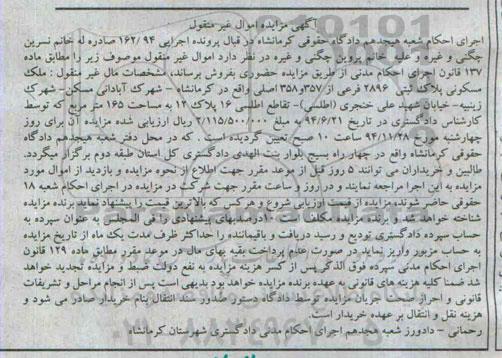 آگهی مزایده اموال غیر منقول
اجرای احکام شعبه هیجدهم دادگاه حقوقی کرمانشاه در قبال پرونده اجرایی ۱۶۲/۹۴ صادره له خانم نسرین
چگنی و غیره و علیه خانم پروین چگنی و غیره در نظر دارد اموال غیر منقول موصوف زیر را مطابق ماده
۱۳۷ قانون اجرای احکام مدنی از طریق مزایده حضوری بفروش برساند، مشخصات مال غیر منقول : ملک
مسکونی پلاک ثبتی ۲۸۹۶ فرعی از ۳۵۷و۳۵۸ اصلی واقع در کرمانشاه - شهرک آبادانی مسکن - شهرک
زینبیه- خیابان شهید علی خنجری (اطلسی)- تقاطع اطلسی ۱۶ پلاک ۱۲ به مساحت ۱۶۵ متر مربع که توسط
کارشناس دادگستری در تاریخ ۹۴/۶/۲۱ به مبلغ ۲/۱۱۵/۵۰۰/۰۰۰ ریال ارزیابی شده مزایده آن برای روز
چهارشنبه مورخ ۹۴/۱۱/۲۸ ساعت ۱۰ صبح تعیین گردیده است . که در محل دفتر شعبه هیجدهم دادگاه
حقوقی کرمانشاه واقع در چهار راه بسیج بلوار بنت الهدی دادگستری کل استان طبقه دوم برگزار میگردد.
طالبین و خریداران می توانند ۵ روز قبل از موعد مقرر جهت اطلاع از نحوه مزایده و بازدید از اموال مورد
مزایده به این اجرا مراجعه نمایند و در روز و ساعت مقرر جهت شرکت در مزایده در اجرای احکام شعبه ۱۸
حقوقی حاضر شوند، مزایده از قیمت ارزیابی شروع و هرکس که بالاترین قیمت را پیشنهاد نماید برنده مزایده
شناخته خواهد شد و برنده مزایده مکلف است ۱۰درصدبهای پیشنهادی را فی المجلس به عنوان سپرده به
حساب سپرده دادگستری تودیع و رسید دریافت و باقیمانده را حداکثر ظرف مدت یک ماه از تاریخ مزایده
به حساب مزبور واریز نماید در صورت عدم پرداخت بقیه بهای مال در موعد مقرر مطابق ماده ۱۲۹ قانون
اجرای احکام مدنی سپرده فوق الذکر پس از کسر هزینه مزایده به نفع دولت ضبط و مزایده تجدید خواهد
شد ضمنا کلیه هزینه های قانونی به عهده برنده مزایده خواهد بود بدیهی است پس از انجام مراحل و تشریفات
قانونی و احراز صحت جریان مزایده توسط دادگاه دستور صدور سند انتقال بنام خریدار صادر می شود و
هزینه نقل و انتقال بر عهده خریدار است.
رحمانی - دادورز شعبه هجدهم اجرای احکام مدنی دادگستری شهرستان کرمانشاه